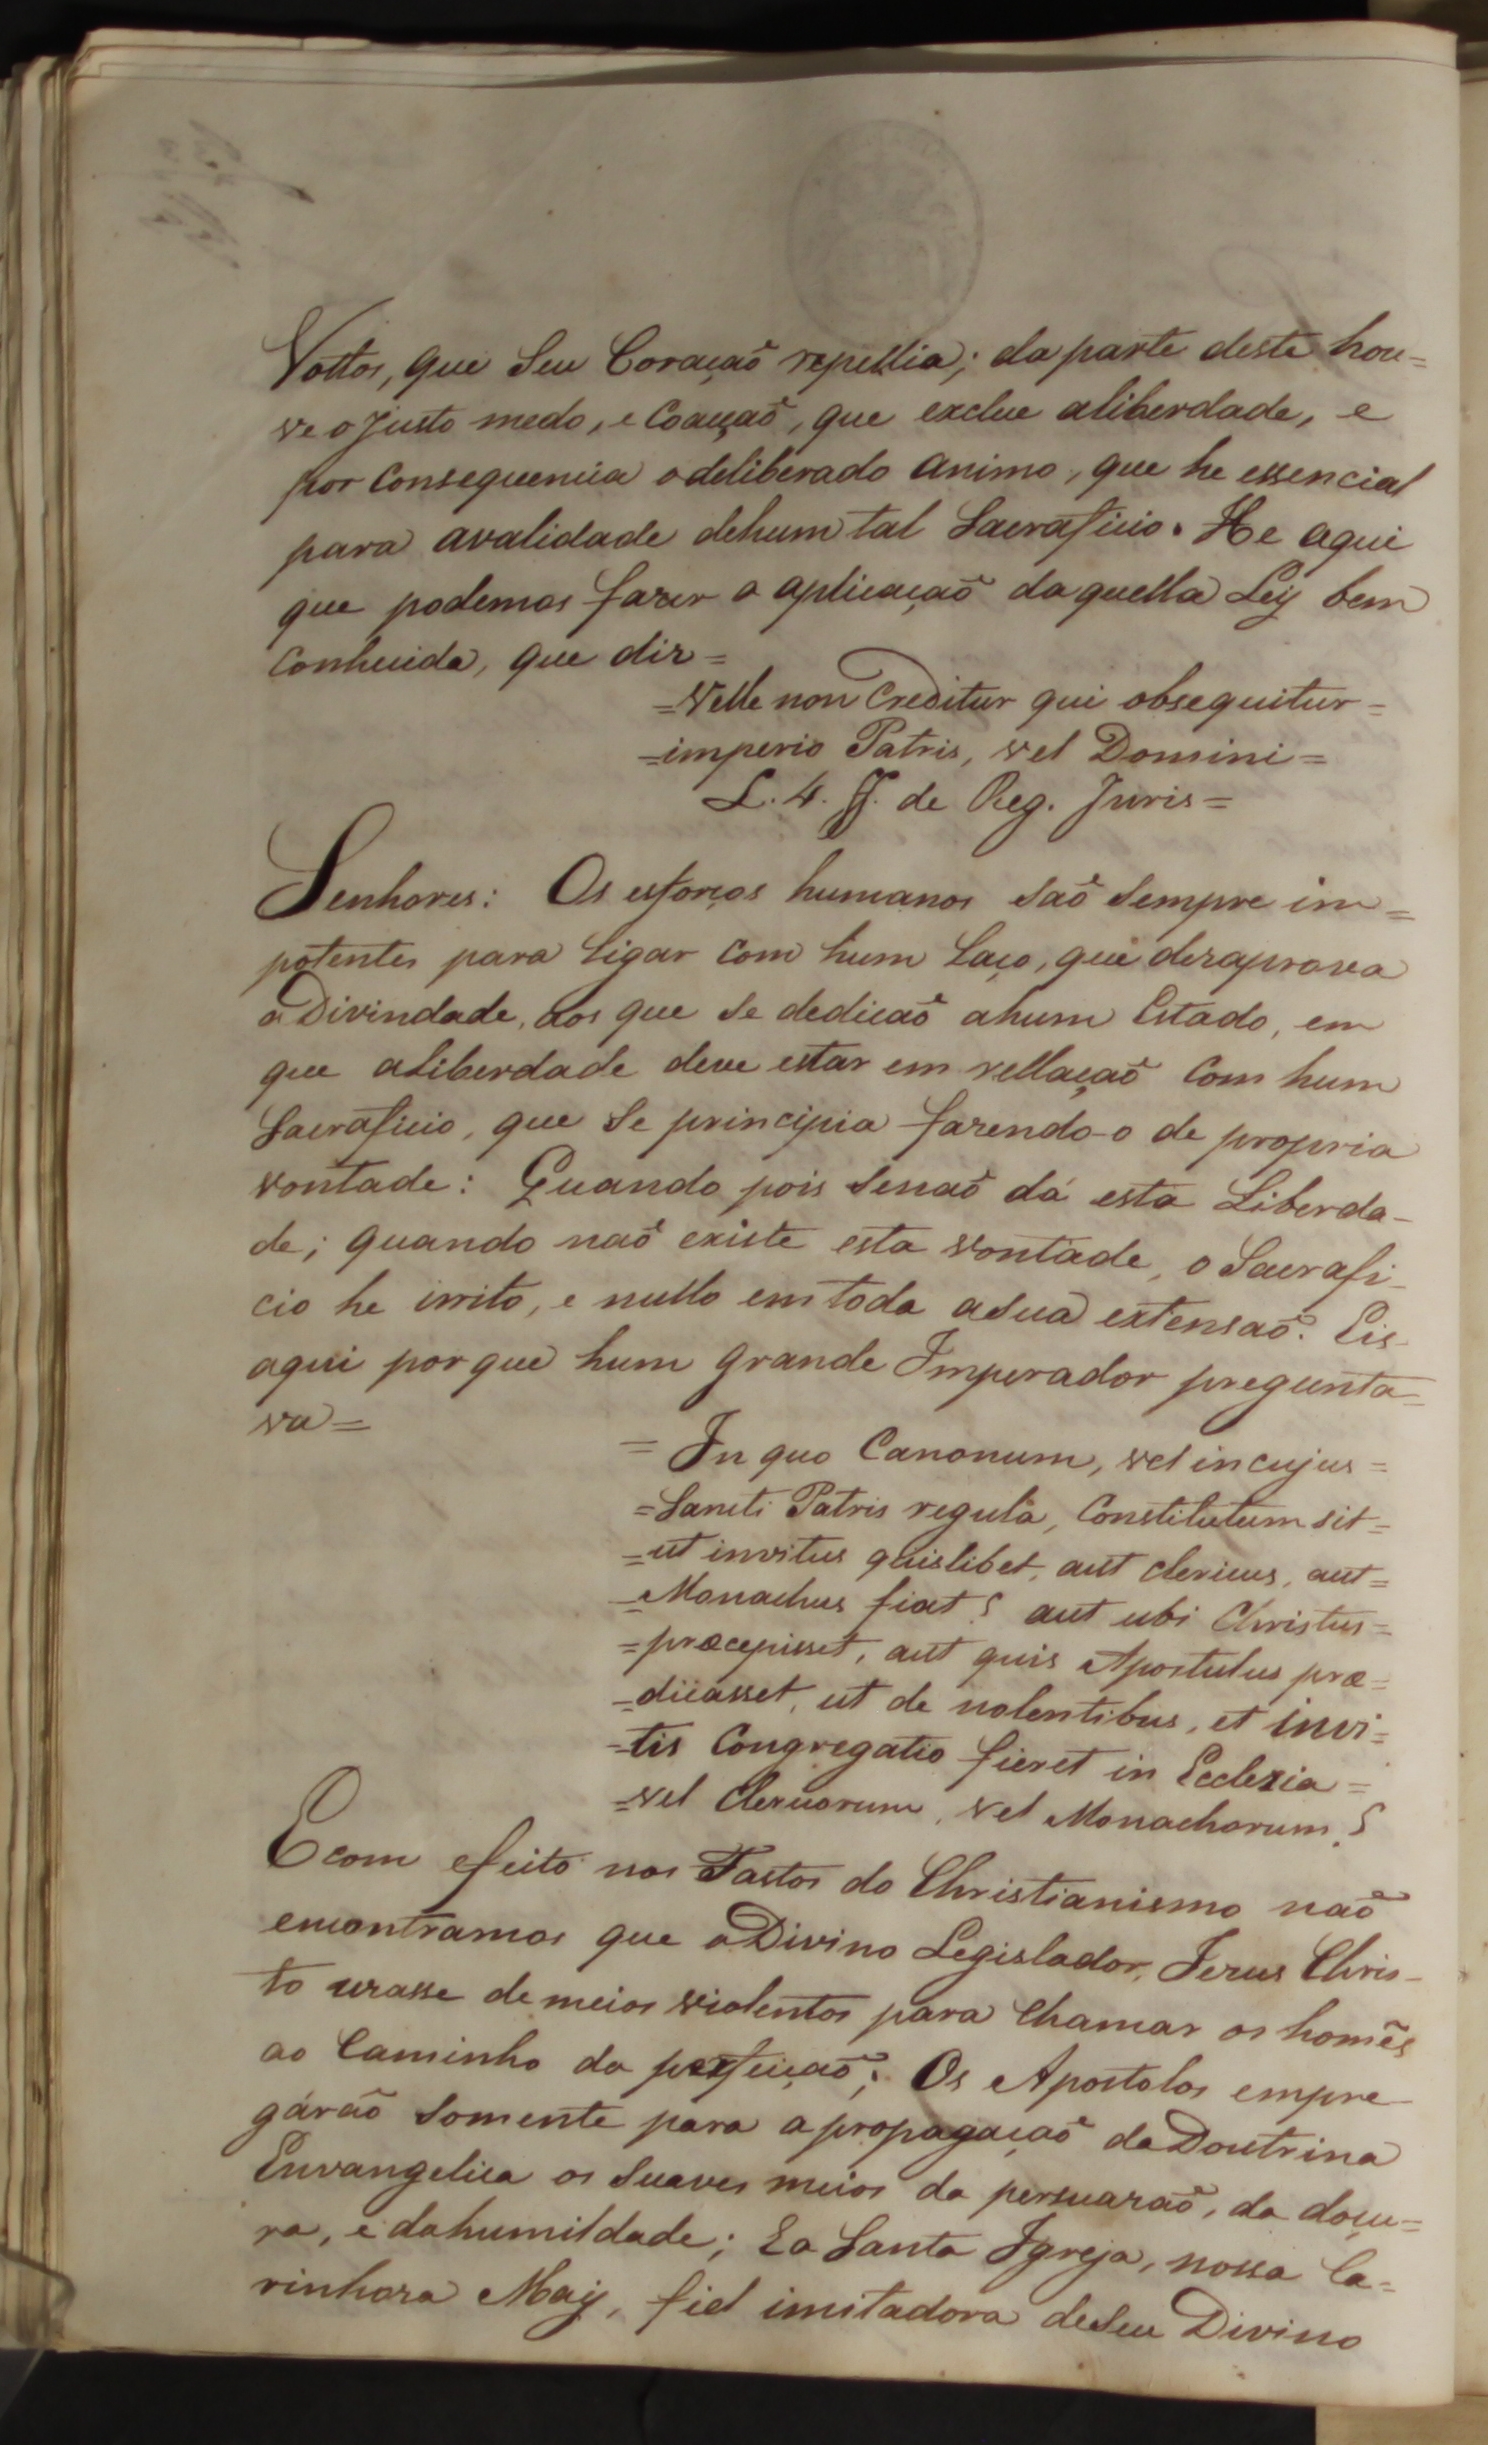 Vottos, que Seu Coraçaõ repellia; da parte deste hou=
ve o justo medo, e Coacçaõ, que exclue aliberdade, e
por Consequencia o deliberado animo, que he essencial
para avalidade dehum tal Sacraficio. He aqui
que podemos fazer a aplicaçaõ daquella Ley bem
Conhecida, que diz=
=Velle non Creditur qui obsequitur=
=imperio Patris, vel Domini=
L. 4. ff. de Reg. Juris=
Senhores: Os esforços humanos saõ sempre im=
potentes para Ligar Com hum Laço, que dezaprova
a Divindade, aos que se dedicaõ ahum Estado, em
que aLiberdade deve estar em rellaçaõ Com hum
Sacraficio, que se principia fazendo-o de propria
vontade: Quando pois senaõ dá esta Liberda-
de; quando naõ existe esta vontade, o Sacrafi-
cio he irrito, e nullo em toda asua extensaõ. Eis-
aqui porque hum grande Imperador pregunta=
va=
= In quo Canonum, vel in cujus=
=Sancti Patris regulâ, Constitutum sit=
=ut invitus quislibet, aut clericus, aut=
=Monachus fiat? aut ubi Christus=
=præcepisset, aut quis Apostulus præ=
=dicasset, ut de nolentibus, et invi=
=tis Congregatio fieret in Eclezia=
=vel Clericorum, vel Monachorum?
E com efeito nos Fastos do Christianismo naõ
encontramos que o Divino Legislador, Jezus Chris-
to uzasse de meios violentos para Chamar os homẽs
ao Caminho da perfeiçaõ; Os Apostolos empre-
gáraõ somente para a propagaçaõ da Doutrina
Euvangelica os suaves meios da persuazaõ, da doçu=
ra, e dahumildade; Ea Santa Igreja, nossa Ca=
rinhoza May, fiel imitadora deseu Divino